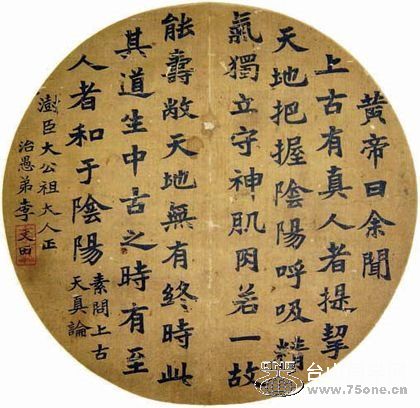 黃帝曰余聞
上古有真人者提挈
天地把握陰陽呼吸精
氣獨立守神肌肉若一故
能壽敝天地無有終時此
其道生中古之時有至
人者和于陰陽
素問上古
天真論
澍臣大公祖大人正
治愚弟李文田
台山
www.75one.cn